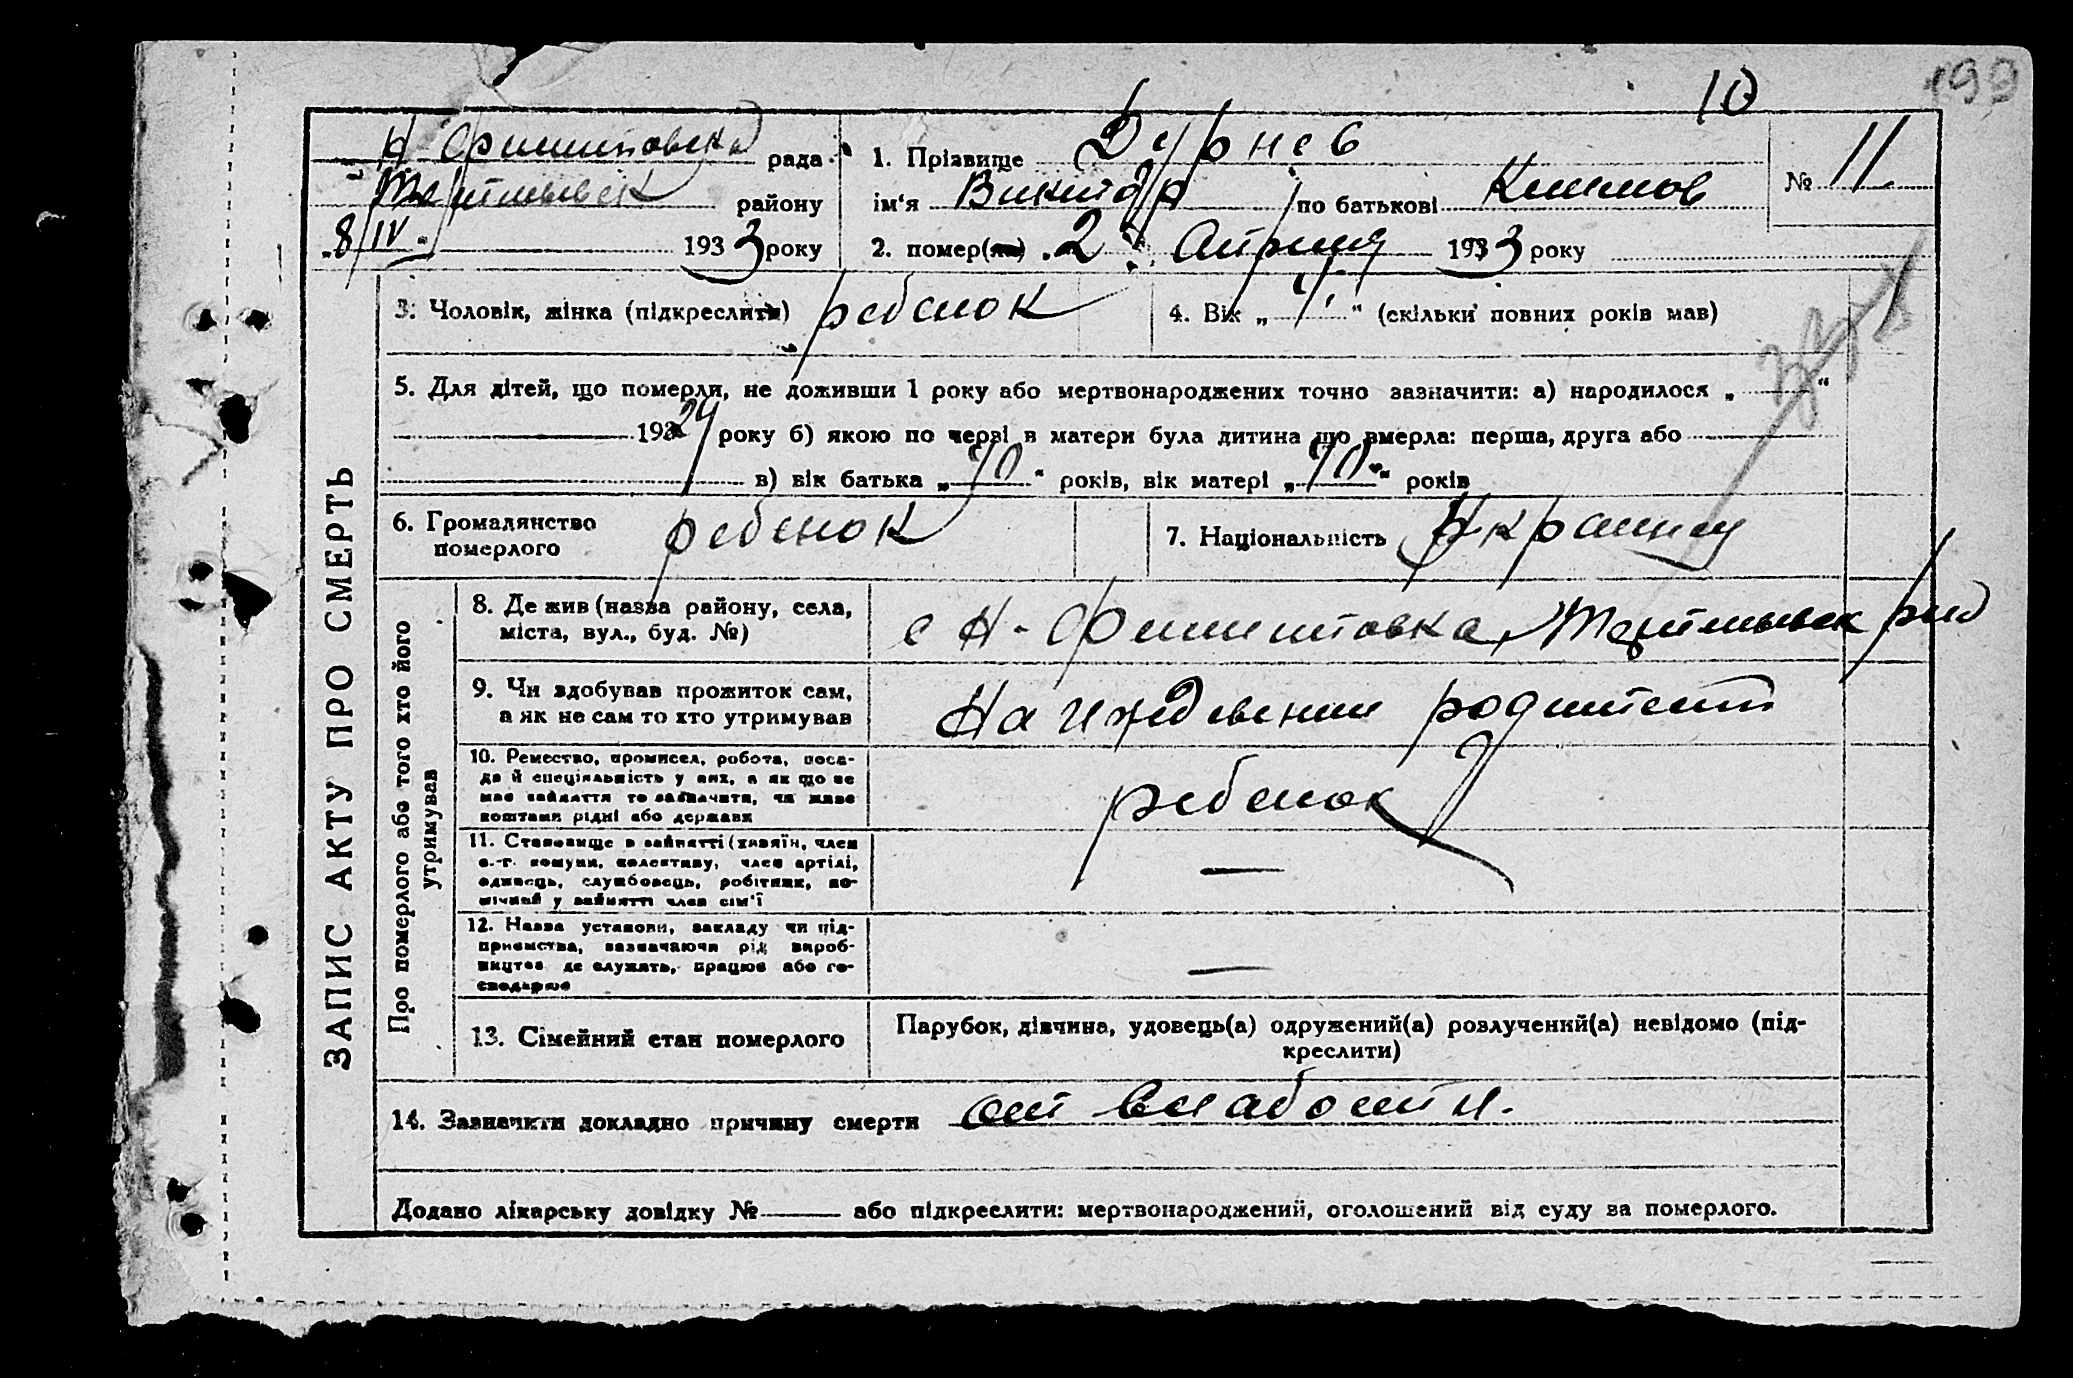 10
199
Н Филиповска рада
району
"8/IV." 1933 року
1. Прізвище Дурнев
№ 11
ім'я Виктор по батькові Климов
2. помер(ла) "2" Апреля 1933 року
ЗАПИС АКТУ ПРО СМЕРТЬ
3. Чоловік, жінка (підкреслити) ребенок
4. Вік „ “ (скільки повних років мав)
5. Для дітей, що померли, не доживши 1 року або мертвонароджених точно зазначити: а) народилося „ “
193 року б) якою по черзі в матери була дитина що вмерла: перша, друга або
в) вік батька „ “ років, вік матері „ “ років
6. Громадянство
померлого
ребенок
7. Національність Украинец
Про померлого або того хто його
утримував
8. Де жив (назва району, села,
міста, вул., буд. №)
с Н-Филиповка,
9. Чи здобував прожиток сам,
а як не сам то хто утримував
На иждевении родителей
10. Ремество, промисел, робота, поса-
да й спеціяльність у них, а як що не
має зайняття то зазначити, чи живе
коштами рідні або держави
ребенок
11. Становище в зайнятті (хазяїн, член
с.-г. комуни, колективу, член артілі,
одинець, службовець, робітник, по-
мічний у зайнятті член сім'ї
—
12. Назва установи, закладу чи під-
приємства, зазначаючи рід вироб-
ництва де служить, працює або го-
сподарює
—
13. Сімейний стан померлого
Парубок, дівчина, удовець(а) одружений(а) розлучений(а) невідомо (під-
креслити)
14. Зазначити докладно причину смерти от слабости.
Додано лікарську довідку № або підкреслити: мертвонароджений, оголошений від суду за померлого.